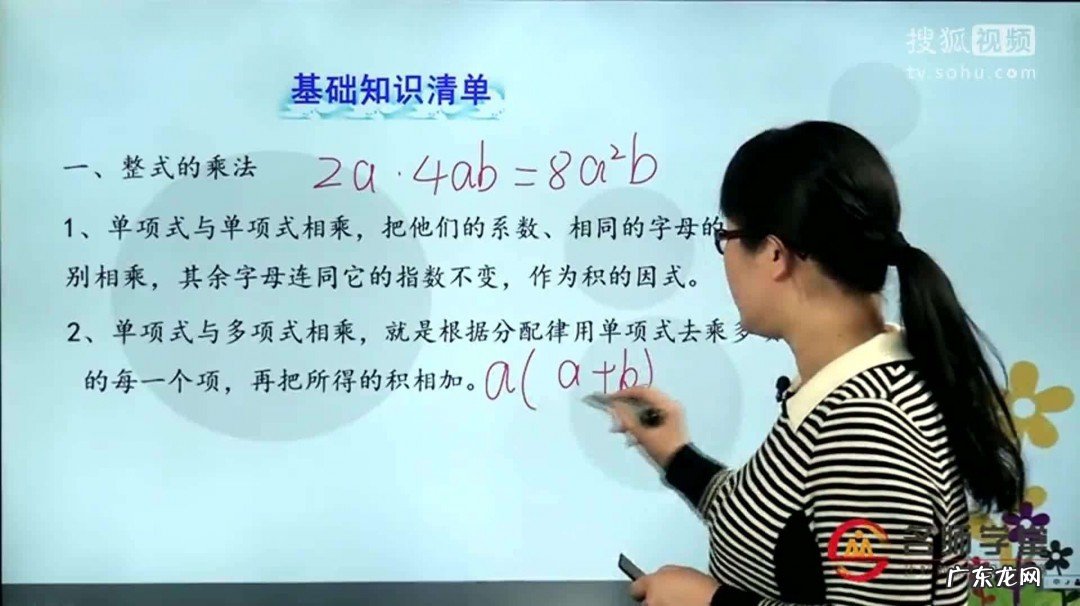 搜狐视频
tv.sohu.com
基础知识清单
一、整式的乘法 2a·4ab=8a²b
1、单项式与单项式相乘，把他们的系数、相同的字母的
别相乘，其余字母连同它的指数不变，作为积的因式。
2、单项式与多项式相乘，就是根据分配律用单项式去乘多
的每一个项，再把所得的积相加。a(a+b)
名师学堂
广东龙网